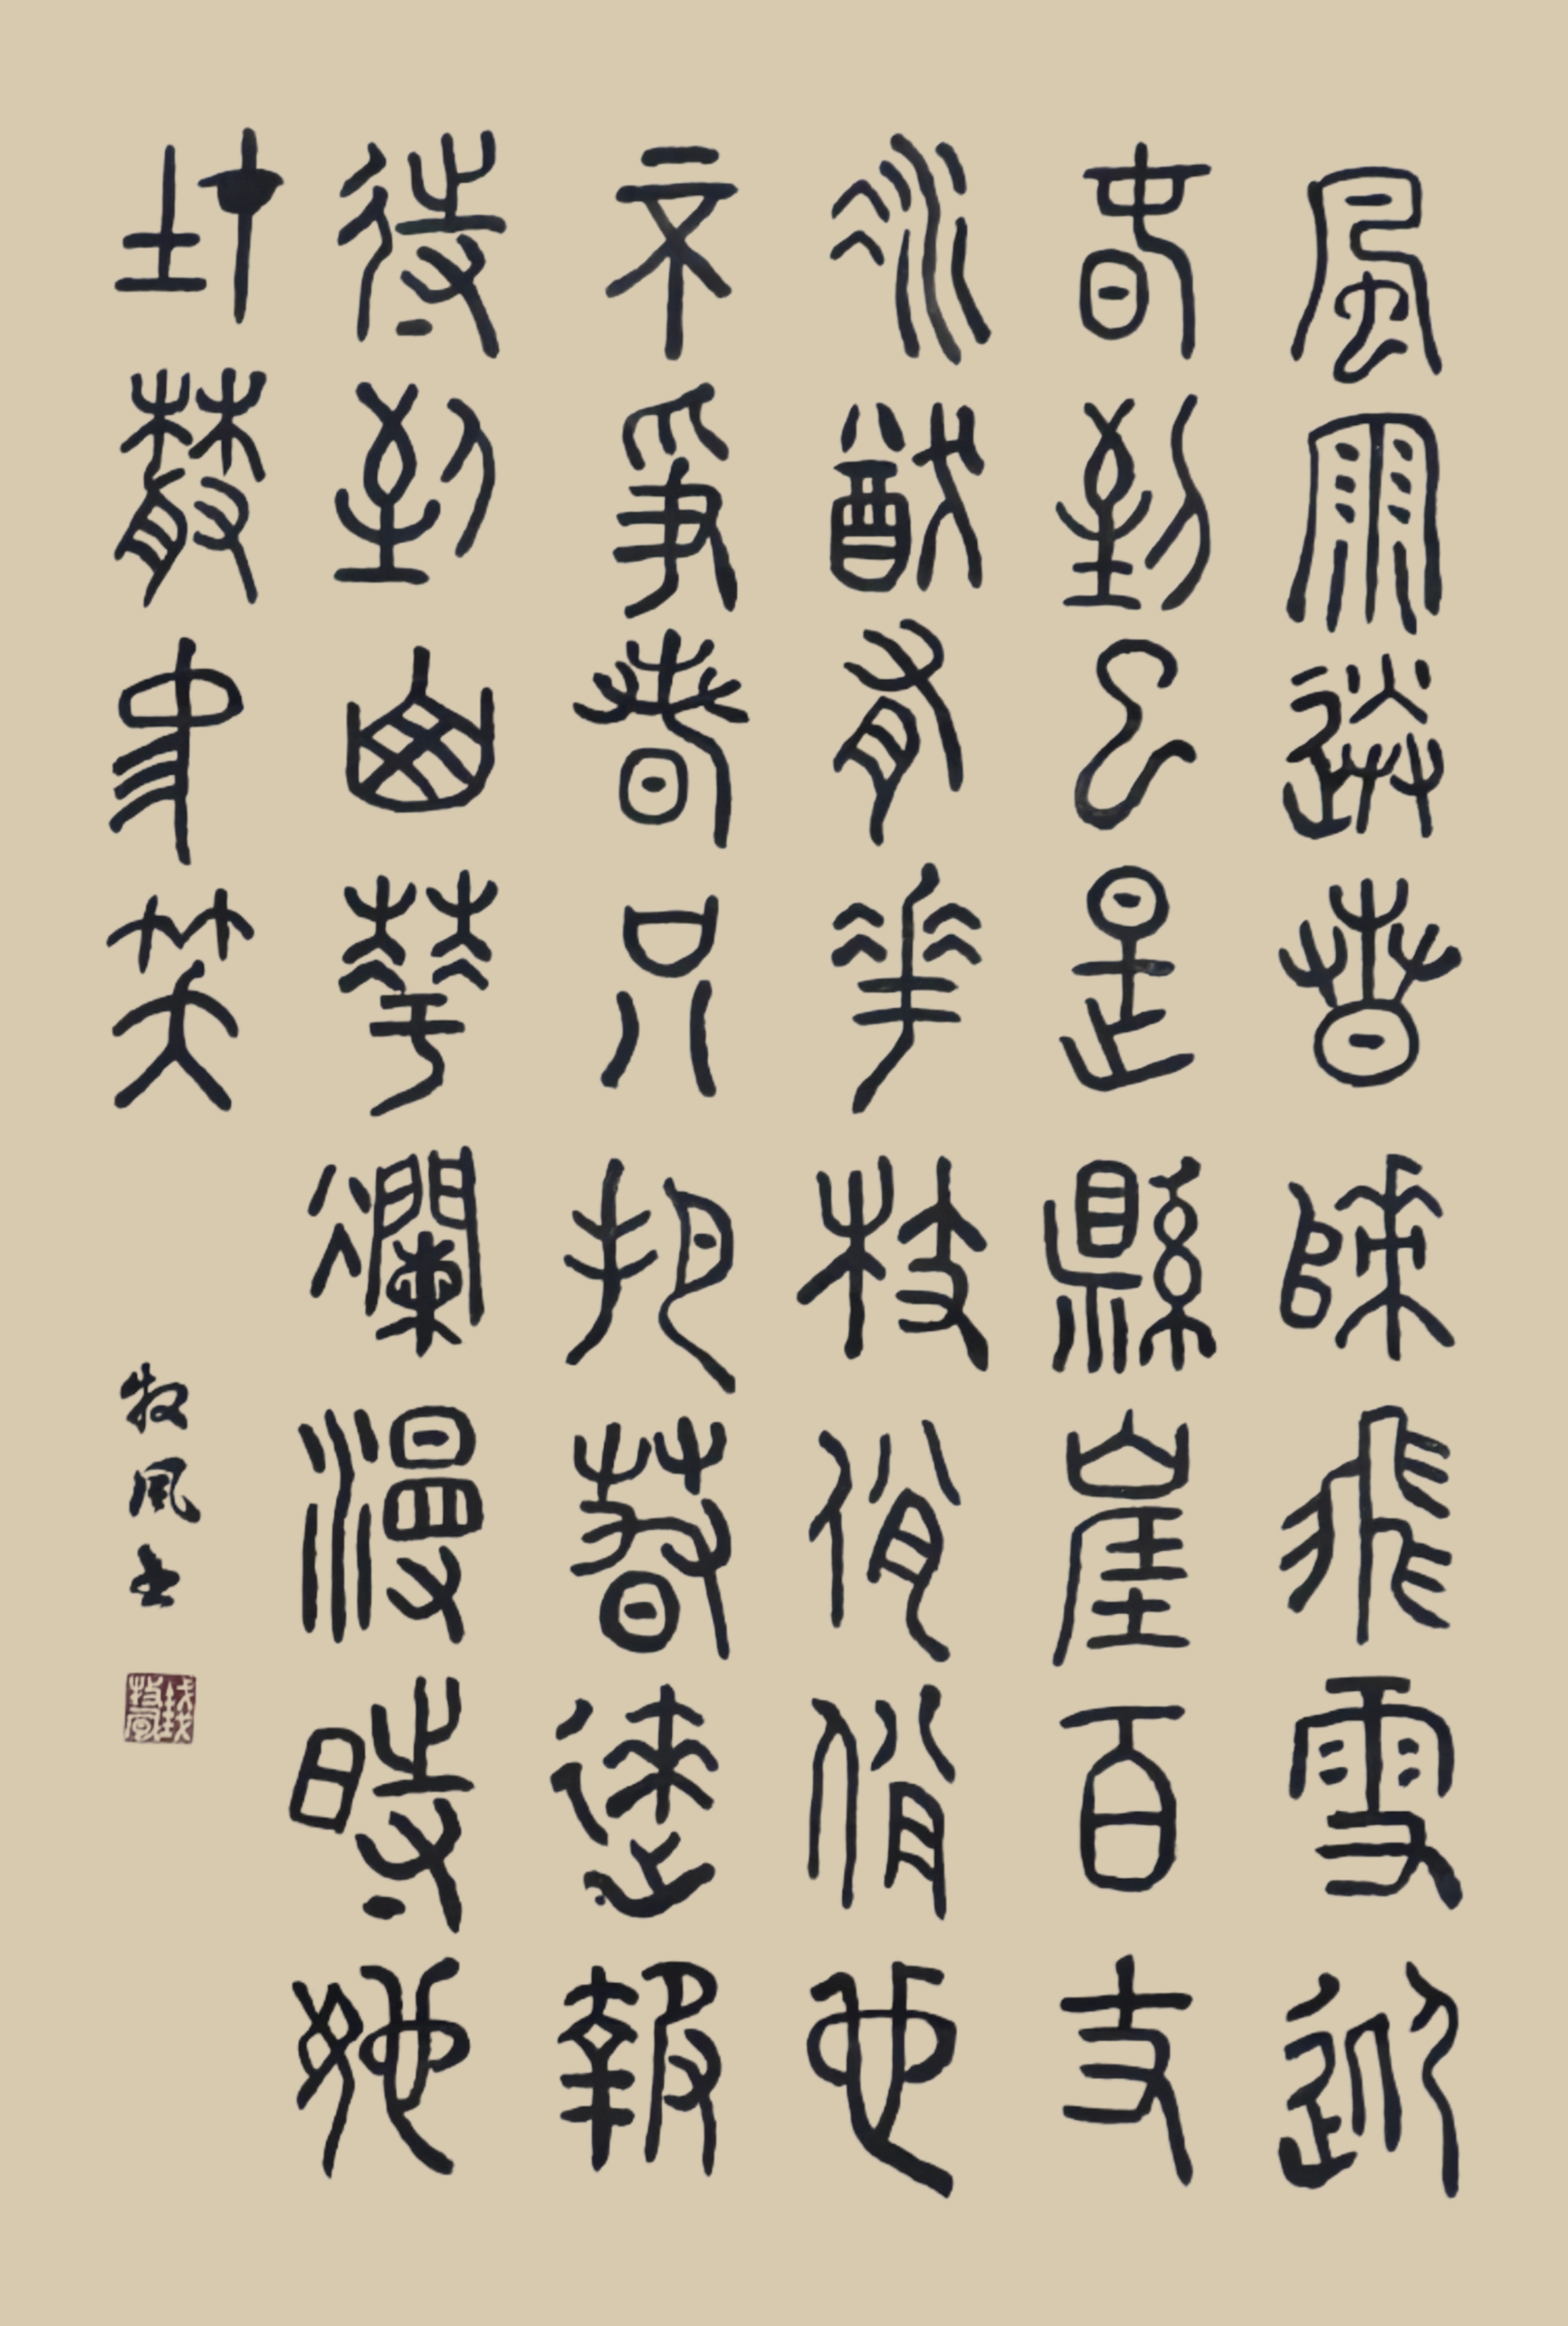 風雨送春歸飛雪迎
春到已是縣崖百丈
冰猶有華枝俏俏也
不爭春只把春來報
待到山華爛漫時她
在叢中笑
牧風书